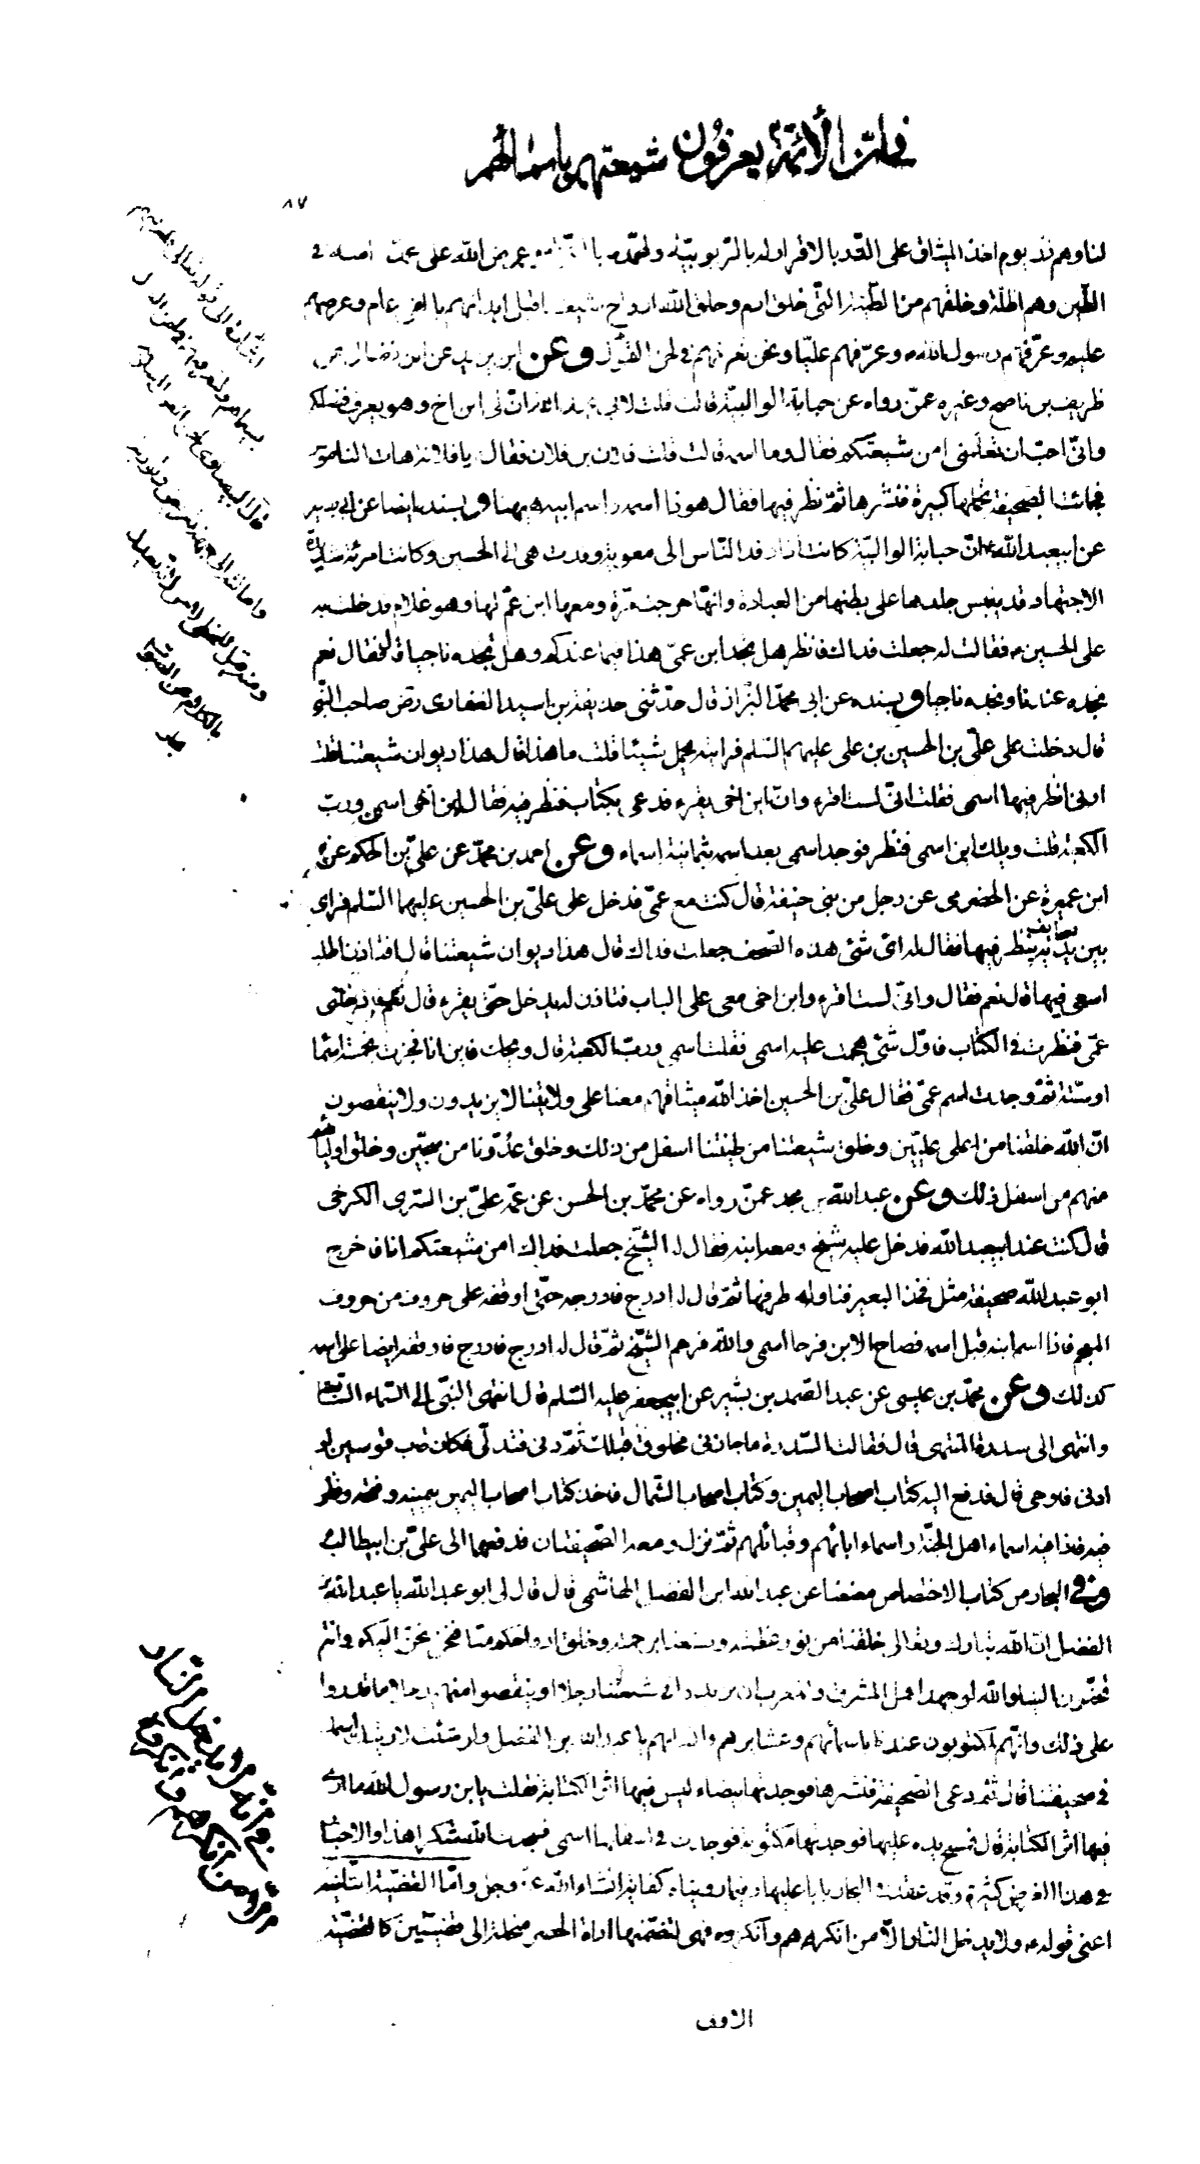 في انّ الأئمّة يعرفون شيعتهم باسمائهم
٨٧
لنا وهم ذر يوم اخذ الميثاق على الذر بالاقرار له بالربوبيّة ولمحمّد بالنبوة وعرض الله على محمد امته في
الطين وهم اظلّة وخلقهم من الطينة الّتي خلق ادم وخلق الله ارواح شيعتنا قبل ابدانهم بالفي عام وعرضهم
عليه وعرّفهم رسول الله وعرّفهم عليّا ونحن نعرفهم في لحن القول وعن ابن يزيد عن ابن فضال عن
ظريف بن ناصح وغيره عمّن رواه عن حبابة الوالبيّة قالت قلت لابي عبد الله انّ لي ابن اخ وهو يعرف فضلكم
وانّي احبّ ان تعلمني امن شيعتكم فقال وما اسمه قالت قلت فلان بن فلان فقال يا فلانة هات الناموس
فجائت بصحيفة تحملها كبيرة فنشرها ثمّ نظر فيها فقال هو ذا اسمه واسم ابيه هيهنا وبسنده ايضا عن ابي بصير
عن ابيعبد الله انّ حبابة الوالبيّة كانت اذا وفد النّاس الى معوية وفدت هي الى الحسين وكانت امرئة شديدة
الاجتهاد قد يبس جلدها على بطنها من العبادة وانّها خرجت مرّة ومعها ابن عمّ لها وهو غلام فدخلت به
على الحسين فقالت له جعلت فداك فانظر هل تجد ابن عمّي هذا فيما عندكم وهل تجده ناجيا قال فقال نعم
نجده عندنا ونجده ناجيا وبسنده عن ابي محمّد البزاز قال حدّثني حذيفة بن اسيد الغفاري رض صاحب النّبي
قال دخلت على عليّ بن الحسين بن علي عليهما السّلم فرايته يحمل شيئا قلت ما هذا قال هذا ديوان شيعتنا قلت
ارني انظر فيها اسمي فقلت انّي لست اقرء وانّ ابن اخي يقرء فدعى بكتاب فنظر فيه فقال ابن اخي اسمي وربّ
الكعبة قلت ويلك اين اسمي فنظر فوجد اسمي بعد اسمه بثمانية اسماء وعن احمد بن محمّد عن عليّ بن الحكم عن
ابن عميرة عن الحضرمي عن رجل من بني حنيفة قال كنت مع عمّي فدخل على عليّ بن الحسين عليهما السّلم فراى
بين يديه صحايف ينظر فيها فقال له اي شئ هذه الصّحف جعلت فداك قال هذا ديوان شيعتنا قال افتاذن اطلب
اسمي فيها قال نعم فقال وانّي لست اقرء وابن اخي معي على الباب فتاذن له يدخل حتّى يقرء قال نعم فادخلني
عمّي فنظرت في الكتاب فاوّل شئ هجمت عليه اسمي فقلت اسمي وربّ الكعبة قال ويحك فاين انا فجزت بخمسة اسما
او ستّة ثمّ وجدت اسم عمّي فقال عليّ بن الحسين اخذ الله ميثاقهم معنا على ولايتنا لا يزيدون ولا ينقصون
انّ الله خلقنا من اعلى عليّين وخلق شيعتنا من طينتنا اسفل من ذلك وخلق عدّونا من سجّين وخلق اوليائهم
منهم من اسفل ذلك وعن عبد الله بن محمد عمّن رواه عن محمّد بن الحسن عن عمّه عليّ بن السّري الكرخي
قال كنت عند ابيعبد الله فدخل عليه شيخ ومعه ابنه فقال له الشّيخ جعلت فداك امن شيعتكم انا فاخرج
ابو عبد الله صحيفة مثل فخذ البعير فناوله طرفها ثمّ قال له ادرج فادرجه حتّى اوقفه على حروف من حروف
المعجم فاذا اسم ابنه قبل اسمه فصاح الابن فرحا اسمي والله فرحم الشّيخ ثمّ قال له ادرج فادرج فاوقفه ايضا على اسمه
كذلك وعن محمّد بن عيسى عن عبد الصّمد بن بشير عن ابيجعفر عليه السّلم قال انتهى النّبيّ الى السّماء السّابعة
وانتهى الى سدرة المنتهى قال فقالت السّدرة ما جازني مخلوق قبلك ثمّ دنى فتدلّى فكان قاب قوسين او
ادنى فاوحى قال فدفع اليه كتاب اصحاب اليمين وكتاب اصحاب الشّمال فاخذ كتاب اصحاب اليمين بيمينه وفتحه ونظر
فيه فاذا فيه اسماء اهل الجنّة واسماء ابائهم وقبائلهم ثمّ نزل ومعه الصّحيفتان فدفعهما الى عليّ بن ابيطالب
وفي البحار من كتاب الاختصاص معنعنا عن عبد الله ابن الفضل الهاشمي قال قال لي ابو عبد الله يا عبد الله بن
الفضل انّ الله تبارك وتعالى خلقنا من نور عظمته وصنعنا برحمته وخلق ارواحكم منّا فنحن نحنّ اليكم وانتم
تحنّون الينا والله لو جهد اهل المشرق والمغرب ان يزيدوا في شيعتنا رجلا او ينقصوا منهم رجلا ما قدروا
على ذلك وانّهم لمكتوبون عندنا باسمائهم وعشايرهم وانسابهم يا عبد الله بن الفضل ولو شئت لاريتك اسمك
في صحيفتنا قال ثمّ دعى الصّحيفة فنشرها فوجدتها بيضاء ليس فيها اثر الكتابة فقلت يا بن رسول الله ما ارى
فيها اثر الكتابة قال فمسح يده عليها فوجدتها مكتوبة فوجدت في اسفلها اسمي فسجدت لله شكرا هذا والاخبار
في هذا الغرض كثيرة وقد عقد في البحار بابا عليها وفيما رويناه كفاية انشاء الله عزّ وجل وامّا القضيّة الثّانية
اعني قوله ولا يدخل النّار الّا من انكرهم وانكروه فهي لتضمّنها اداة الحصر منحلة الى قضيّتين كالقضيّة
الاولى
ومنه قيل للمخطئ لاحن لانّه يعدل
بالكلام عن الصّواب
في انّه لا يدخل النّار
الّا من انكرهم وانكروه